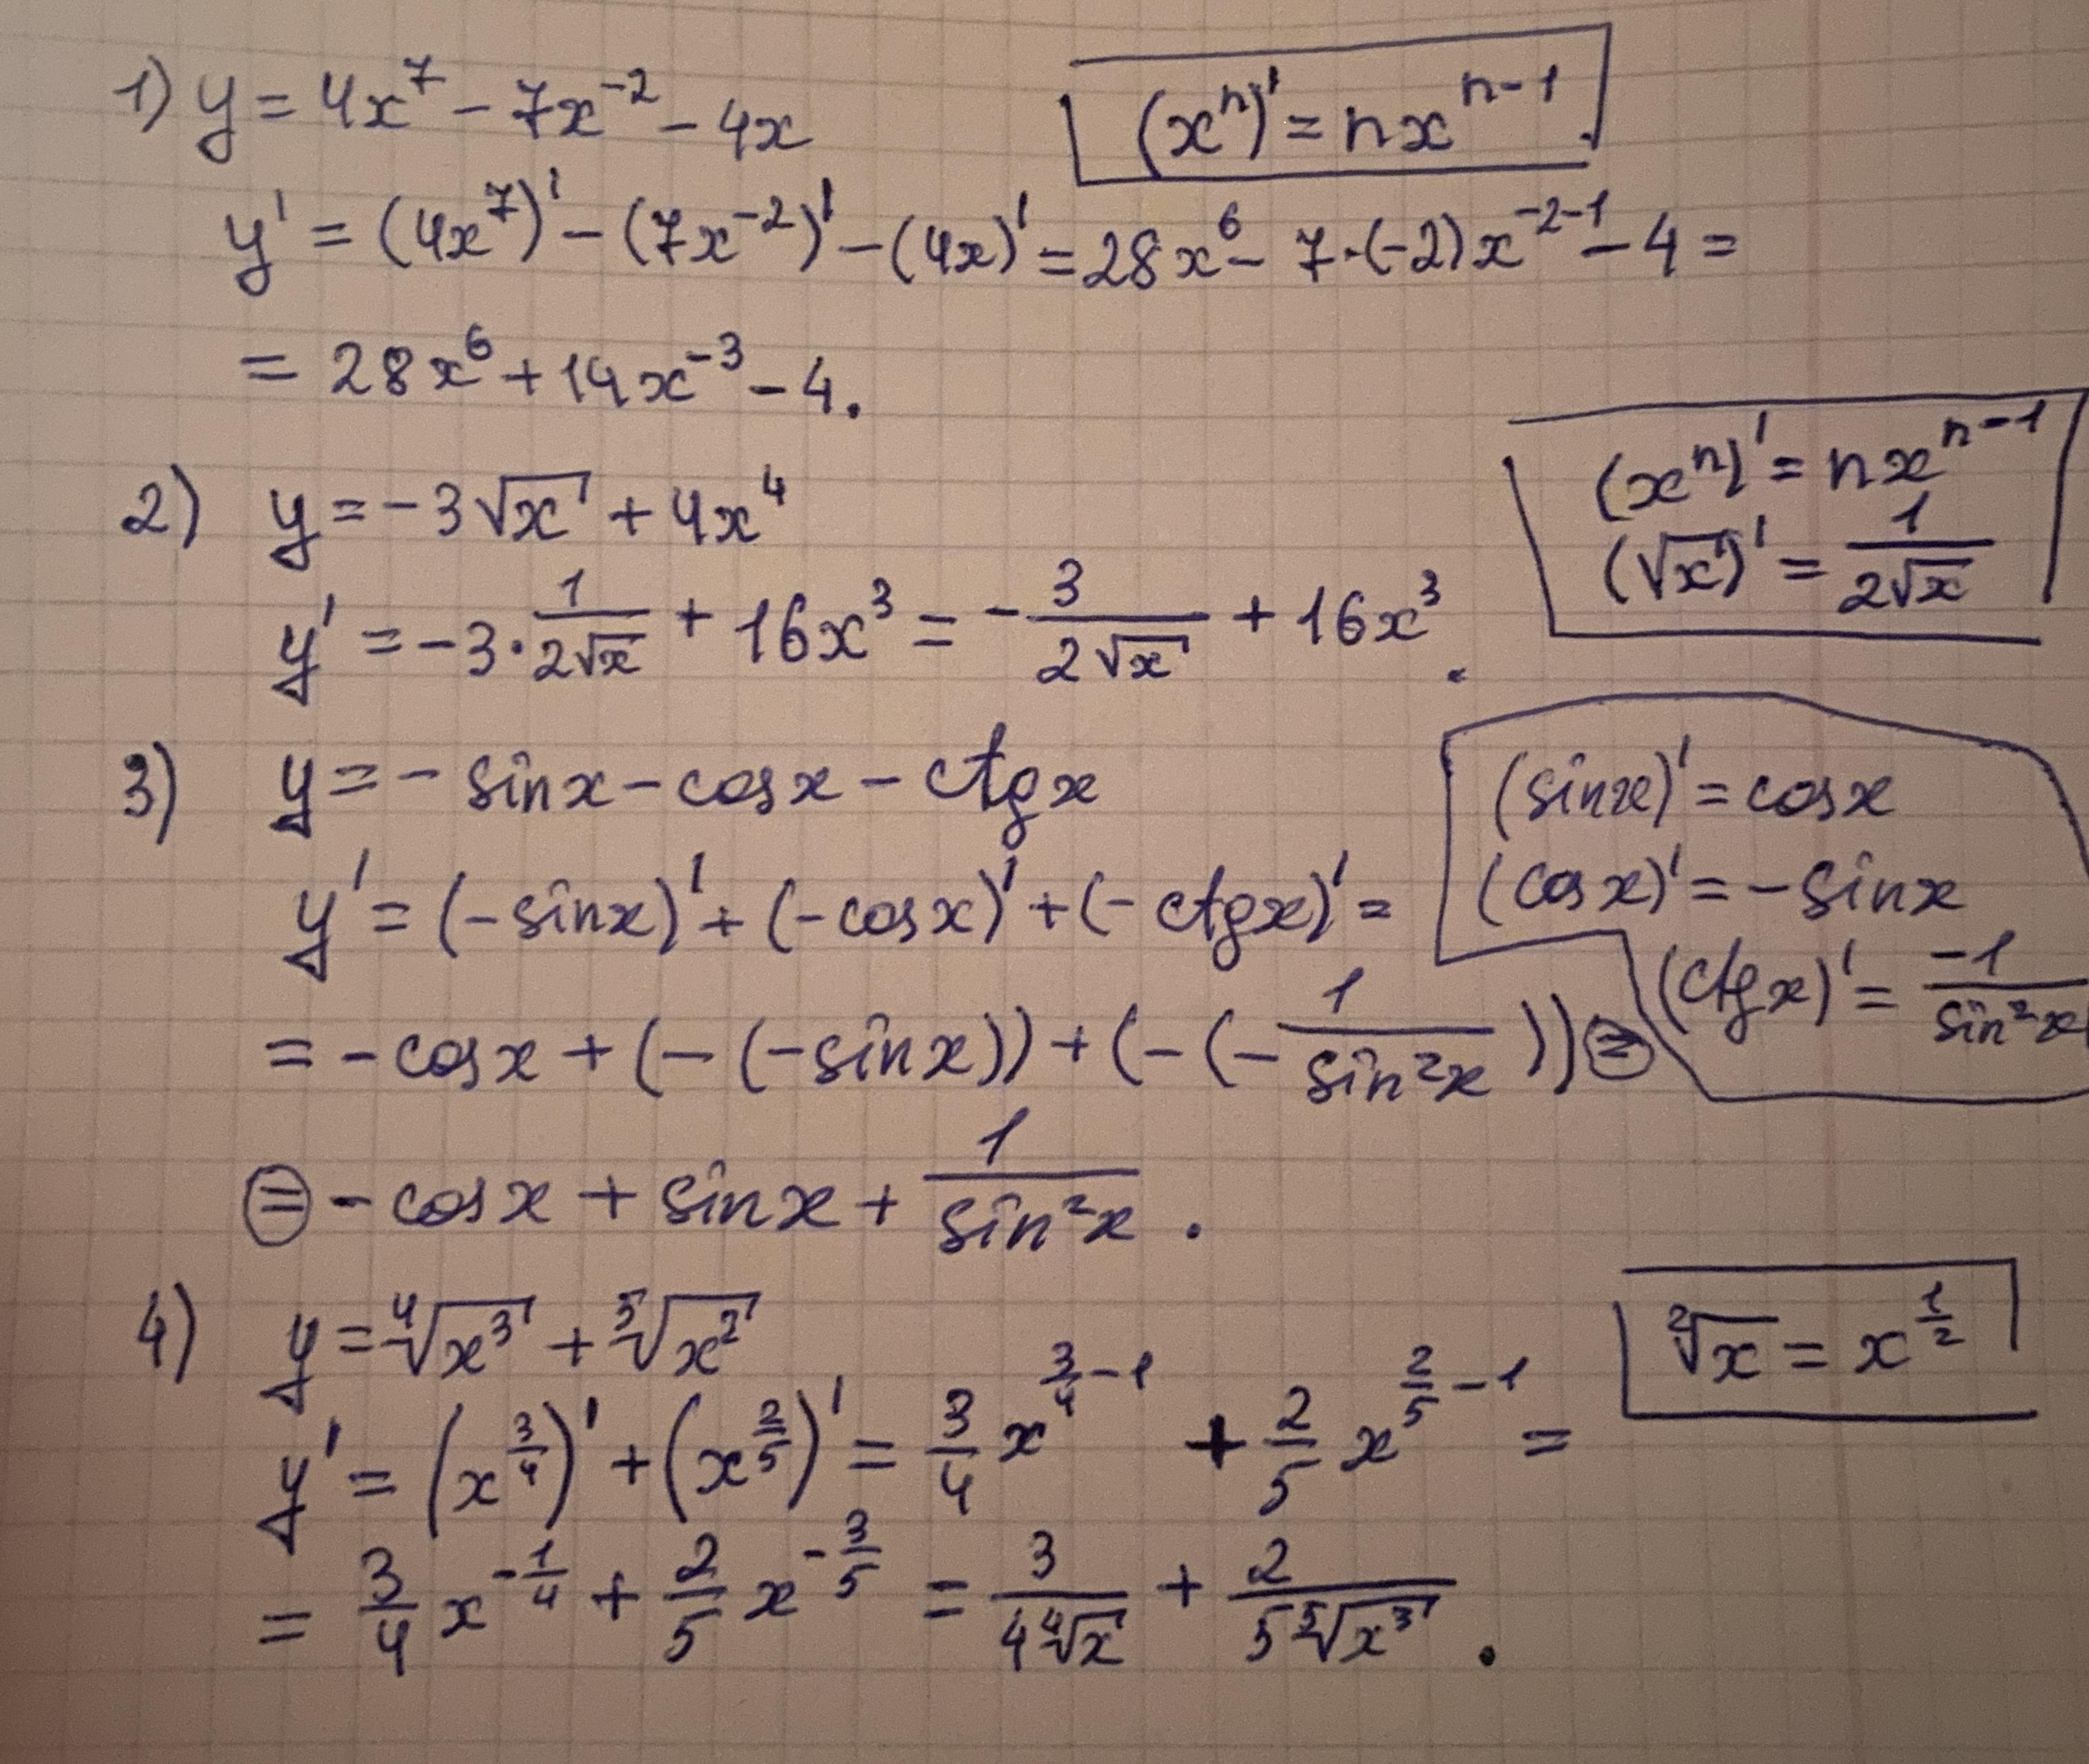 1) y = 4x⁷ − 7x⁻² − 4x
(xⁿ)' = nxⁿ⁻¹.
y' = (4x⁷)' − (7x⁻²)' − (4x)' = 28x⁶ − 7·(−2)x⁻²⁻¹ − 4 =
= 28x⁶ + 14x⁻³ − 4.
(xⁿ)' = nxⁿ⁻¹
2) y = −3√x + 4x⁴
(√x)' = 1/(2√x)
y' = −3·1/(2√x) + 16x³ = −3/(2√x) + 16x³.
3) y = − sinx − cosx − ctgx
(sinx)' = cosx
y' = (−sinx)' + (−cosx)' + (−ctgx)' =
(cosx)' = −sinx
(ctgx)' = −1/(sin²x)
= −cosx + (−(−sinx)) + (−(−1/(sin²x))) =
= −cosx + sinx + 1/(sin²x).
4) y = ⁴√(x³) + ⁵√(x²)
²√x = x^(1/2)
y' = (x^(3/4))' + (x^(2/5))' = 3/4 x^(3/4−1) + 2/5 x^(2/5−1) =
= 3/4 x^(−1/4) + 2/5 x^(−3/5) = 3/(4⁴√x) + 2/(5⁵√(x³)).